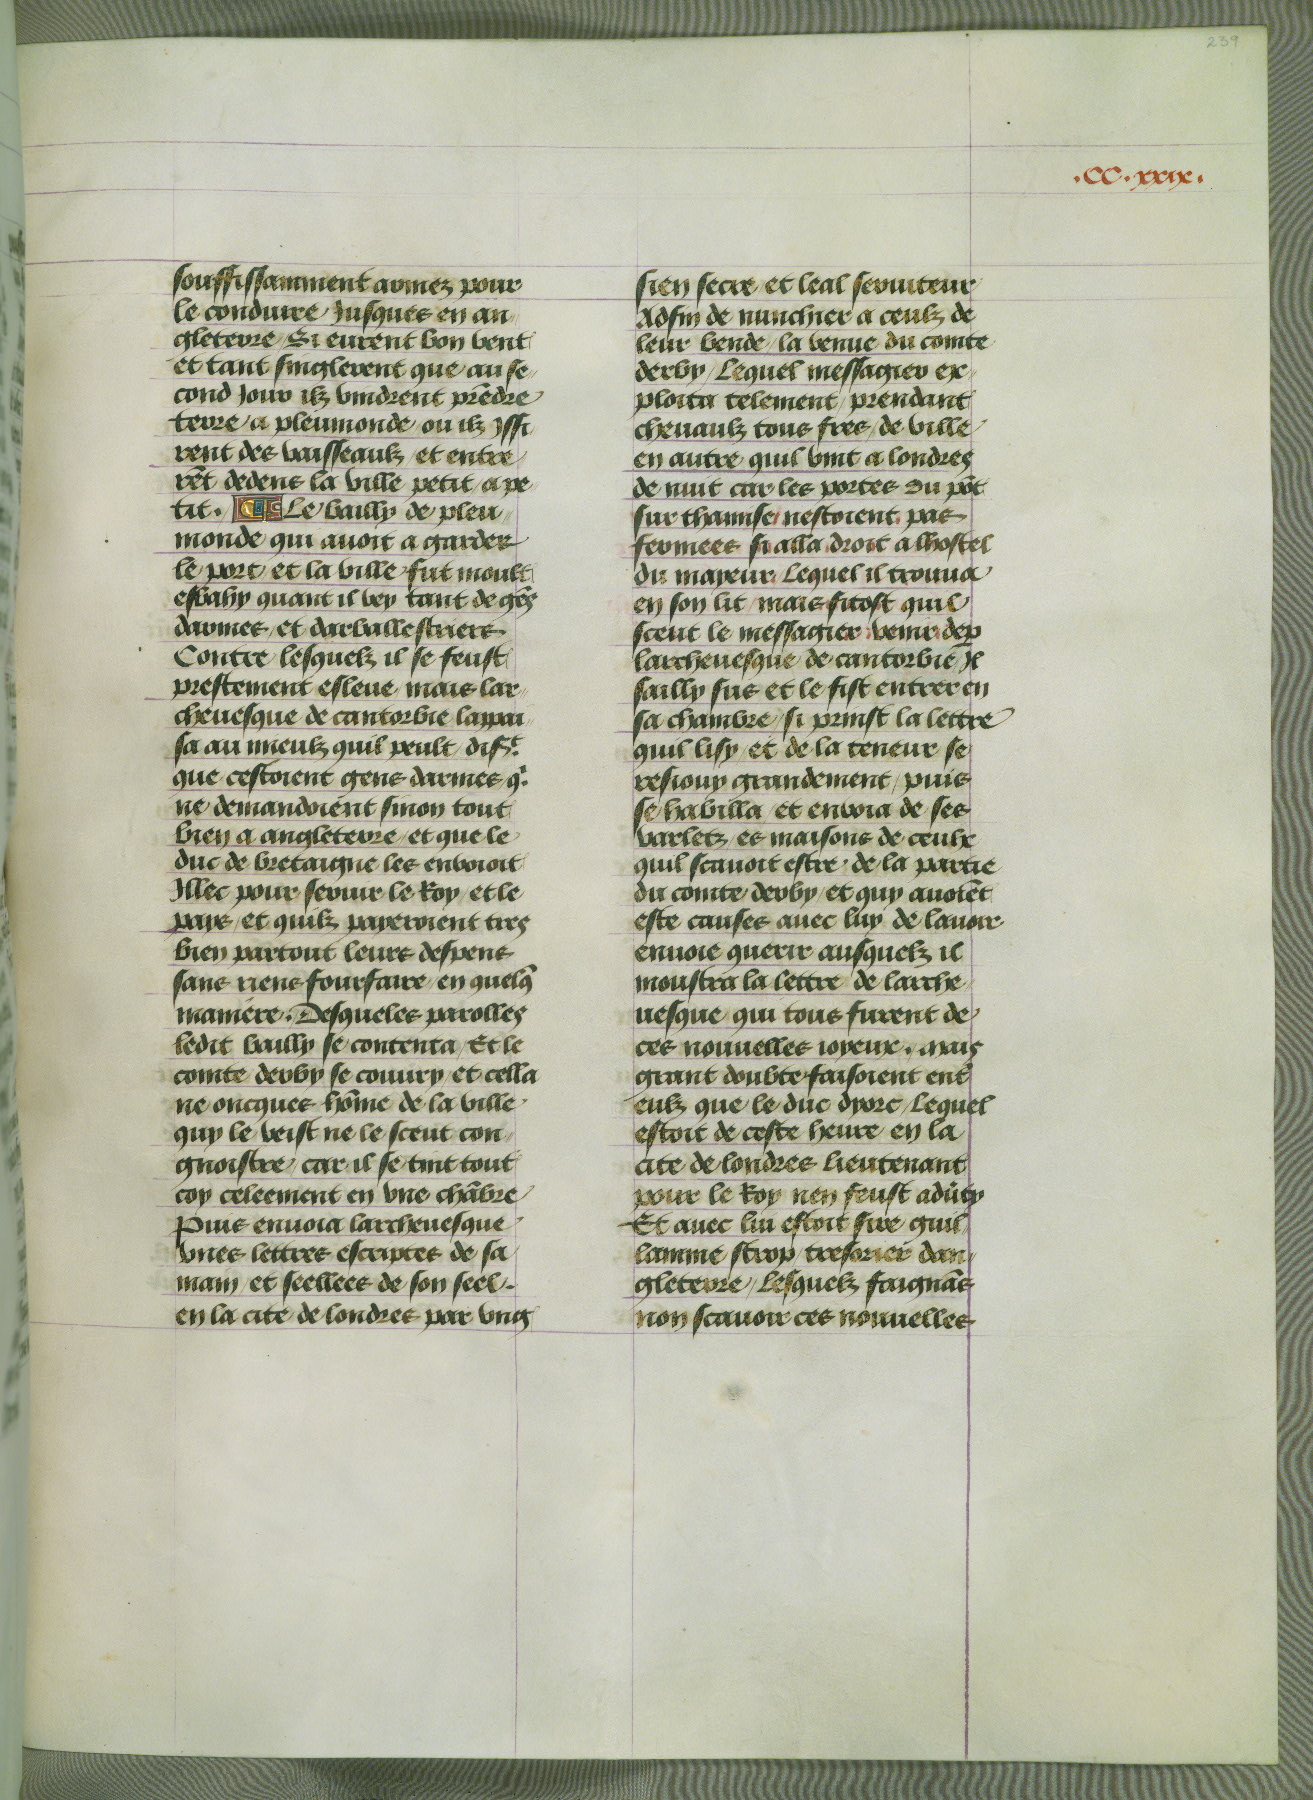 239
.CC.xxix.
souffissamment armez pour
le conduire Jusques en an
gleterre / Si eurent bon vent
et tant singlerent que au se
cond Jour ilz vindrent prēdre
terre a pleumonde ou ilz yssi
rent des vaisseaulz et entre
rēt dedens la ville petit a pe
tit. Le bailly de pleu
monde qui auoit a garder
le port et la ville fut moult
esbahy quant il vey tant de gēs
darmes et darballestriers
Contre lesquelz il se feust
prestement esleue mais lar
cheuesque de cantorbie lappai
sa au mieulz quil peult disāt
que cestoient gens darmes qⁱ
ne demandoient sinon tout
bien a angleterre et que le
duc de bretaigne les enuoioit
Illec pour seruir le Roy et le
pays et quilz payeroient tres
bien partout leurs despens
sans riens fourfaire en quelq̄
maniere. Desqueles parolles
ledit bailly se contenta / Et le
comte derby se couury et cella
ne oncques hōme de la ville
quy le veist ne le sceut con
gnoistre car il se tint tout
coy celeement en vne chābre
Puis enuoia larcheuesque
vnes lettres escriptes de sa
main et seellees de son seel
en la cite de londres par vng
sien secre et leal seruiteur
Adfin de nunchier a ceulz de
leur bende la venue du comte
derby / Lequel messagier ex
ploita telement prendant
cheuaulz tous fres de ville
en autre quil vint a londres
de nuit car les portes du pōt
sur thamise nestoient pas
fermees si alla droit a lhostel
du mayeur Lequel il trouua
en son lit mais sitost quil
sceut le messagier venir dep
larcheuesque de cantorbie / Il
sailly sus et le fist entrer en
sa chambre / si prinst la lettre
quil lisy et de la teneur se
resiouy grandement / puis
se habilla et enuoia de ses
varletz es maisons de ceulx
quil scauoit estre de la partie
du comte derby et quy auoiēt
este causes auec luy de lauoir
enuoie querir ausquelz il
moustra la lettre de larche
uesque qui tous furent de
ces nouuelles ioyeux. mais
grant doubte faisoient ent̄
eulz que le duc dyorc / Lequel
estoit de ceste heure en la
cite de londres Lieutenant
pour le Roy nen feust adūty
Et auec lui estoit sire guil
lamme strop tresorier dan
gleterre / Lesquelz faignās
non scauoir ces nouuelles